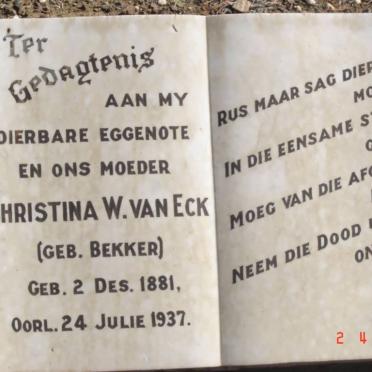 Ter
Gedagtenis
AAN MY
DIERBARE EGGENOTE
EN ONS MOEDER
CHRISTINA W. VAN ECK
(GEB. BEKKER)
GEB. 2 DES. 1881,
OORL. 24 JULIE 1937.
RUS MAAR SAG DIER
MO
IN DIE EENSAME S
MOEG VAN DIE AFG
NEEM DIE DOOD
ON
2 4